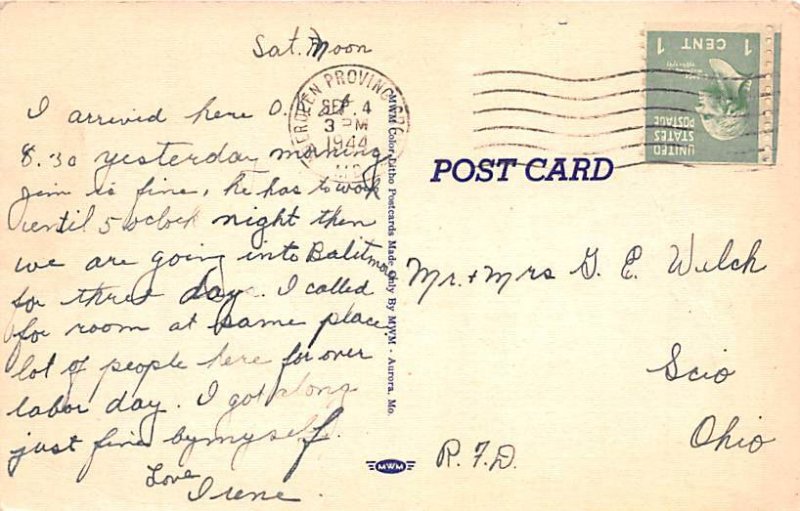 Sat. Noon
I arrived here O.K. at
8.30 yesterday morning
Jim is fine, he has to work
until 5 oclock night then
we are going into Balitmore
for three day. I called
for room at same place,
lot of people here for over
labor day. I got along
just fine by myself.
Love
Irene.
PROVING
SEP 4
3 PM
1944
MD
MWM Color-Litho Postcards Made Only By MWM - Aurora, Mo.
MWM
POST CARD
1 CENT 1
UNITED
STATES
POSTAGE
Mr. + Mrs G. E. Welch
Scio
Ohio
R.F.D.